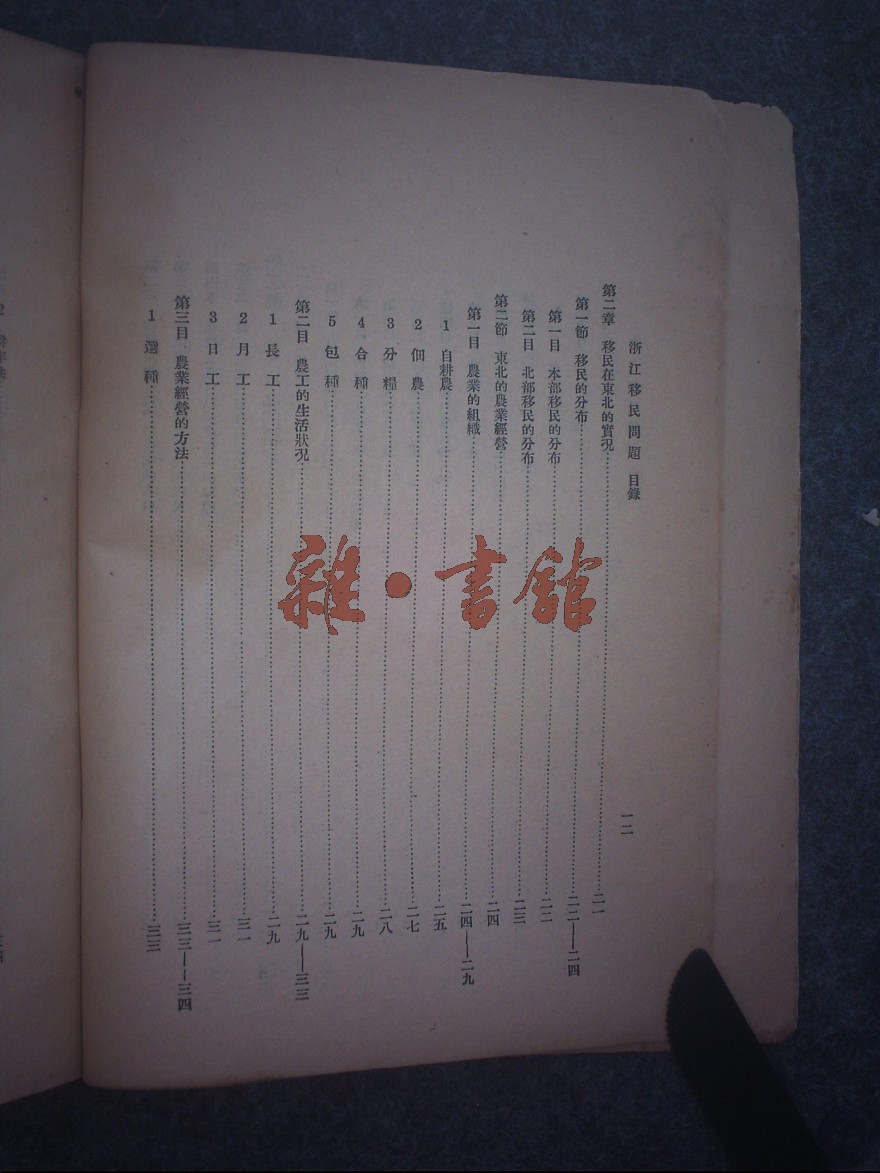 浙江移民問題 目錄
一二
第二章 移民在東北的實況 二一
第一節 移民的分布 二二——二四
第一目 本部移民的分布 二二
第二目 北部移民的分布 二三
第二節 東北的農業經營 二四
第一目 農業的組織 二四——二九
1 自耕農 二五
2 佃農 二七
3 分糧 二八
4 合種 二九
5 包種 二九
第二目 農工的生活狀况 二九——三三
1 長工 二九
2 月工 三一
3 日工 三一
第三目 農業經營的方法 三三——三四
1 選種 三三
雜·書館